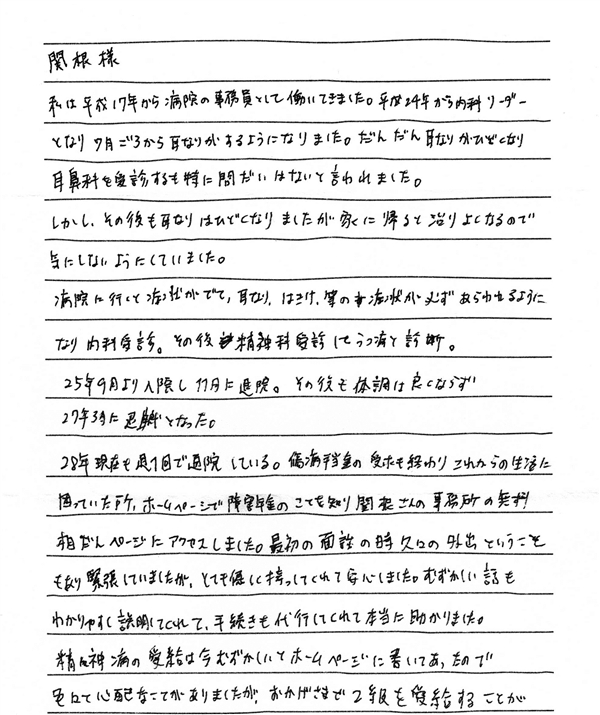 関根様
私は平成17年から病院の事務員として働いてきました。平成24年から内科リーダー
となり7月ごろから耳なりがするようになりました。だんだん耳なりがひどくなり
耳鼻科を受診するも特に問だいはないと言われました。
しかし、その後も耳なりはひどくなりましたが家に帰ると治りよくなるので
気にしないようにしていました。
病院に行くと症状がでて、耳なり、はきけ、等の症状が必ずあらわれるように
なり内科受診。その後精神科受診しうつ病と診断。
25年9月より入院し11月に退院。その後も体調は良くならず
27年3月に退職となった。
28年現在も週1回で通院している。傷病手当金の受給も終わりこれからの生活に
困っていた所、ホームページで障害年金のことを知り関根さんの事務所の無料
相だんページにアクセスしました。最初の面談の時久々の外出ということも
もあり緊張していましたが、とても優しく接ってくれて安心しました。むずかしい話も
わかりやすく説明してくれて、手続きも代行してくれて本当に助かりました。
精神病の受給は今むずかしいとホームページに書いてあったので
色々と心配なことがありましたが、おかげさまで2級を受給することが